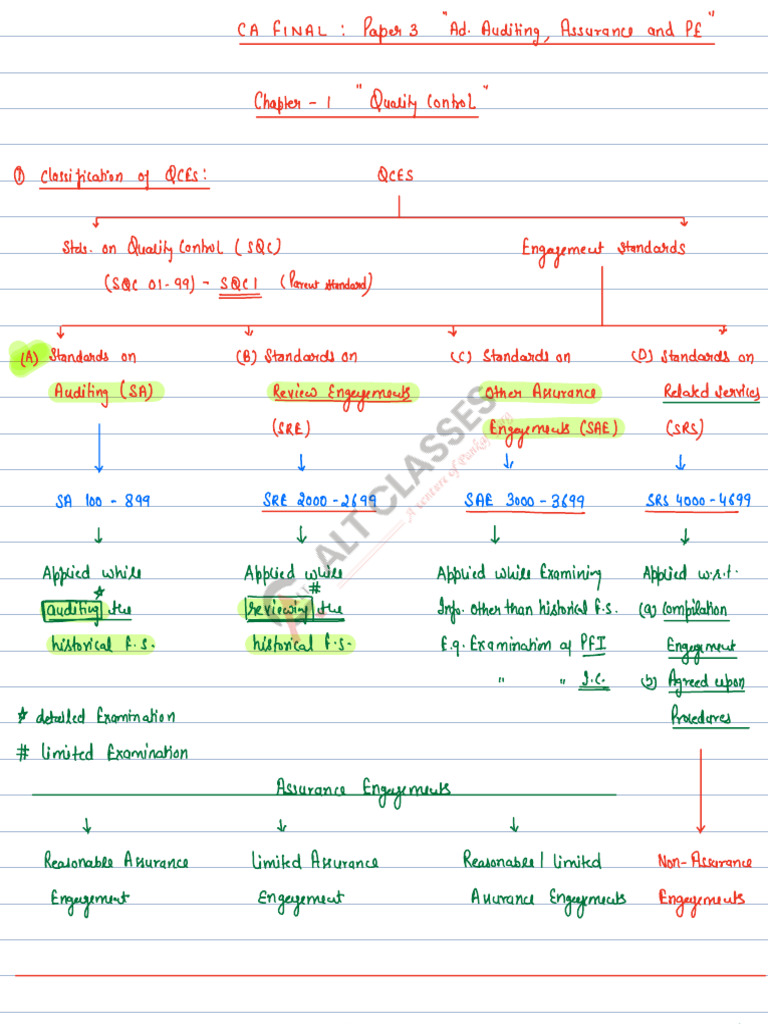 CA FINAL : Paper 3 "Ad. Auditing, Assurance and PE"
Chapter - 1 "Quality Control"
① Classification of QCES :
QCES
Stds. on Quality Control (SQC)
(SQC 01-99) - SQC 1 (Parent Standard)
Engagement Standards
(A) Standards on
Auditing (SA)
(B) Standards on
Review Engagements
(SRE)
(C) Standards on
Other Assurance
Engagements (SAE)
(D) Standards on
Related Services
(SRS)
SA 100 - 899
SRE 2000 - 2699
SAE 3000 - 3699
SRS 4000 - 4699
Applied while
*
auditing the
historical F.S.
Applied while
#
reviewing the
historical F.S.
Applied while Examining
Info. other than historical F.S.
E.g. Examination of PFI
" " I.C.
Applied w.r.t.
(a) Compilation
Engagement
(b) Agreed upon
Procedures
* detailed Examination
# limited Examination
Assurance Engagements
Reasonable Assurance
Engagement
Limited Assurance
Engagement
Reasonable / Limited
Assurance Engagements
Non-Assurance
Engagements
ALT CLASSES